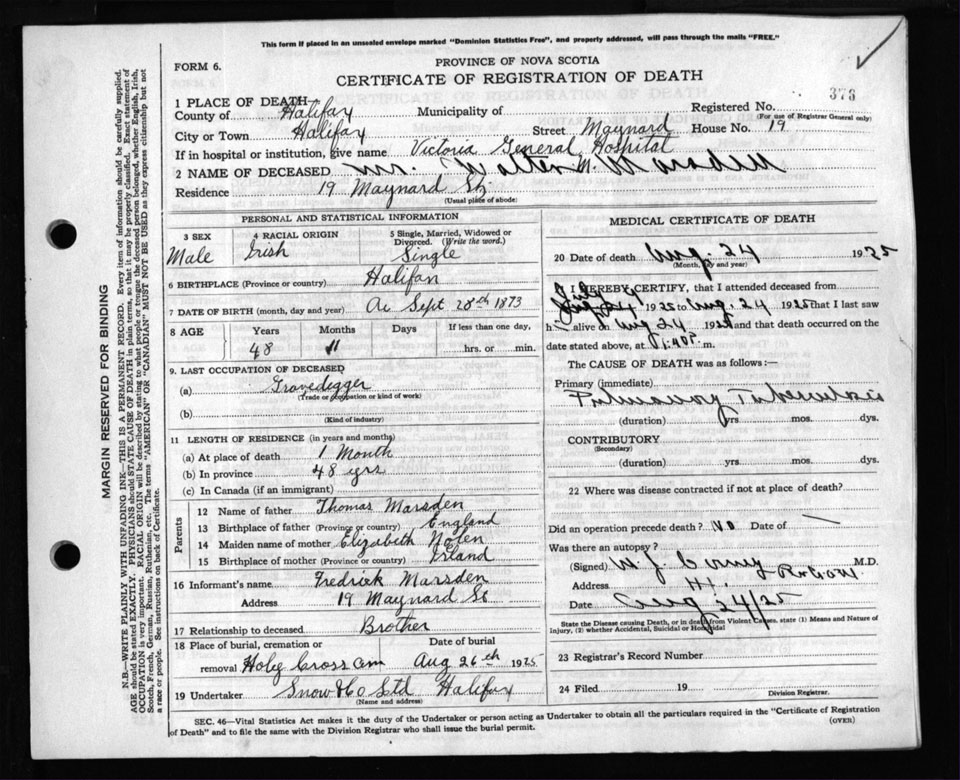 This form if placed in an unsealed envelope marked "Dominion Statistics Free", and properly addressed, will pass through the mails "FREE."
FORM 6.
PROVINCE OF NOVA SCOTIA
CERTIFICATE OF REGISTRATION OF DEATH
373
1 PLACE OF DEATH—
County of Halifax Municipality of Registered No.
(For use of Registrar General only)
City or Town Halifax Street Maynard House No. 19
If in hospital or institution, give name Victoria General Hospital
2 NAME OF DECEASED Mr. Walter Marsden
Residence 19 Maynard St.
(Usual place of abode)
PERSONAL AND STATISTICAL INFORMATION
3 SEX 4 RACIAL ORIGIN 5 Single, Married, Widowed or Divorced. (Write the word.)
Male Irish Single
6 BIRTHPLACE (Province or country) Halifax
7 DATE OF BIRTH (month, day and year) Sept 28th 1873
8 AGE Years Months Days If less than one day,
48 11 hrs. or min.
9. LAST OCCUPATION OF DECEASED
(a) Gravedigger
(Trade or occupation or kind of work)
(b)
(Kind of industry)
11 LENGTH OF RESIDENCE (in years and months)
(a) At place of death 1 Month
(b) In province 48 yrs
(c) In Canada (if an immigrant)
Parents
12 Name of father Thomas Marsden
13 Birthplace of father (Province or country) England
14 Maiden name of mother Elizabeth Nolen
15 Birthplace of mother (Province or country) Irland
16 Informant's name Fredrick Marsden
Address 19 Maynard St
17 Relationship to deceased Brother
18 Place of burial, cremation or Date of burial
removal Holy Cross Cem Aug 26th 1925
19 Undertaker Snow & Co Ltd Halifax
(Name and address)
MEDICAL CERTIFICATE OF DEATH
20 Date of death Aug. 24 1925
(Month, day and year)
I HEREBY CERTIFY, that I attended deceased from
July 24 1925 to Aug. 24 1925 that I last saw
h alive on Aug 24 1925 and that death occurred on the
date stated above, at 1:40 P. m.
The CAUSE OF DEATH was as follows:—
Primary (immediate)
Pulmonary Tuberculosis
(duration) yrs mos. dys.
CONTRIBUTORY
(Secondary)
(duration) yrs. mos. dys.
22 Where was disease contracted if not at place of death?
Did an operation precede death? No Date of —
Was there an autopsy?
(Signed) M.D.
Address
Date Aug 24/25
State the Disease causing Death, or in death from Violent Causes, state (1) Means and Nature of
Injury, (2) whether Accidental, Suicidal or Homicidal
23 Registrar's Record Number
24 Filed 19
Division Registrar.
SEC. 46—Vital Statistics Act makes it the duty of the Undertaker or person acting as Undertaker to obtain all the particulars required in the "Certificate of Registration
of Death" and to file the same with the Division Registrar who shall issue the burial permit.
(OVER)
MARGIN RESERVED FOR BINDING
N.B.—WRITE PLAINLY WITH UNFADING INK—THIS IS A PERMANENT RECORD. Every item of information should be carefully supplied.
AGE should be stated EXACTLY. PHYSICIANS should STATE CAUSE OF DEATH in plain terms, so that it may be properly classified. Exact statement of
OCCUPATION is very important. RACIAL ORIGIN will be described by stating to what people or tongue the deceased person belonged, whether English, Irish,
Scotch, French, German, Russian, Ruthenian, etc. The terms "AMERICAN" OR "CANADIAN" MUST NOT BE USED as they express citizenship but not
a race or people. See instructions on back of Certificate.